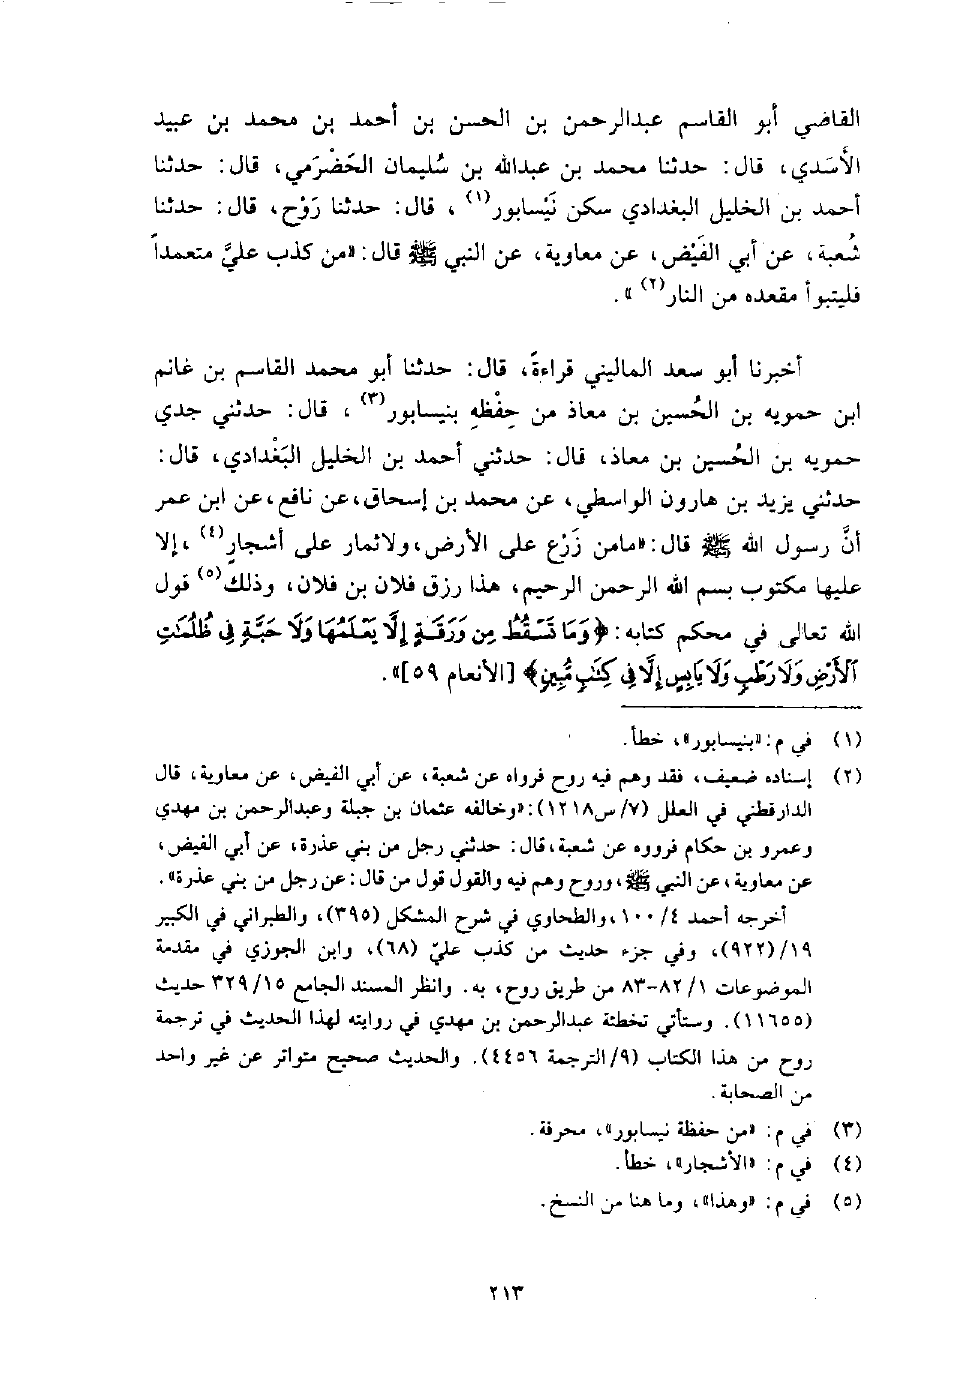 القاضي أبو القاسم عبدالرحمن بن الحسن بن أحمد بن محمد بن عبيد
الأَسَدي، قال: حدثنا محمد بن عبدالله بن سُليمان الحَضْرَمي، قال: حدثنا
أحمد بن الخليل البغدادي سكن نَيْسابور(١)، قال: حدثنا رَوْح، قال: حدثنا
شُعبة، عن أبي الفَيْض، عن معاوية، عن النبي ﷺ قال: «من كذب عليَّ متعمداً
فليتبوأ مقعده من النار(٢)».
أخبرنا أبو سعد الماليني قراءةً، قال: حدثنا أبو محمد القاسم بن غانم
ابن حمويه بن الحُسين بن معاذ من حِفْظِهِ بنيسابور(٣)، قال: حدثني جدي
حمويه بن الحُسين بن معاذ، قال: حدثني أحمد بن الخليل البَغْدادي، قال:
حدثني يزيد بن هارون الواسطي، عن محمد بن إسحاق، عن نافع، عن ابن عمر
أنَّ رسول الله ﷺ قال: «مامن زَرْع على الأرض، ولاثمار على أشجارٍ(٤)، إلا
عليها مكتوب بسم الله الرحمن الرحيم، هذا رزق فلان بن فلان، وذلك(٥) قول
الله تعالى في محكم كتابه: ﴿وَمَا تَسْقُطُ مِن وَرَقَةٍ إِلَّا يَعْلَمُهَا وَلَا حَبَّةٍ فِى ظُلُمَٰتِ
ٱلْأَرْضِ وَلَا رَطْبٍ وَلَا يَابِسٍ إِلَّا فِى كِتَٰبٍ مُّبِينٍ﴾ [الأنعام ٥٩]».
(١) في م: «بنيسابور»، خطأ.
(٢) إسناده ضعيف، فقد وهم فيه روح فرواه عن شعبة، عن أبي الفيض، عن معاوية، قال
الدارقطني في العلل (٧/ س١٢١٨): «وخالفه عثمان بن جبلة وعبدالرحمن بن مهدي
وعمرو بن حكام فرووه عن شعبة، قال: حدثني رجل من بني عذرة، عن أبي الفيض،
عن معاوية، عن النبي ﷺ، وروح وهم فيه والقول قول من قال: عن رجل من بني عذرة».
أخرجه أحمد ٤/ ١٠٠، والطحاوي في شرح المشكل (٣٩٥)، والطبراني في الكبير
١٩/ (٩٢٢)، وفي جزء حديث من كذب عليّ (٦٨)، وابن الجوزي في مقدمة
الموضوعات ١/ ٨٢-٨٣ من طريق روح، به. وانظر المسند الجامع ١٥/ ٣٢٩ حديث
(١١٦٥٥). وستأتي تخطئة عبدالرحمن بن مهدي في روايته لهذا الحديث في ترجمة
روح من هذا الكتاب (٩/ الترجمة ٤٤٥٦). والحديث صحيح متواتر عن غير واحد
من الصحابة.
(٣) في م: «من حفظة نيسابور»، محرفة.
(٤) في م: «الأشجار»، خطأ.
(٥) في م: «وهذا»، وما هنا من النسخ.
٢١٣